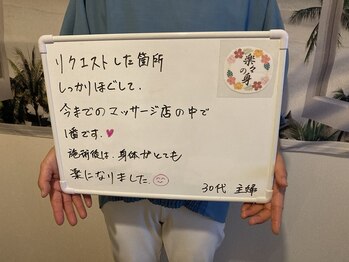 リクエストした箇所
しっかりほぐして、
今までのマッサージ店の中で
1番です。♥
施術後は、身体がとても
楽になりました。
30代 主婦
楽々
の身